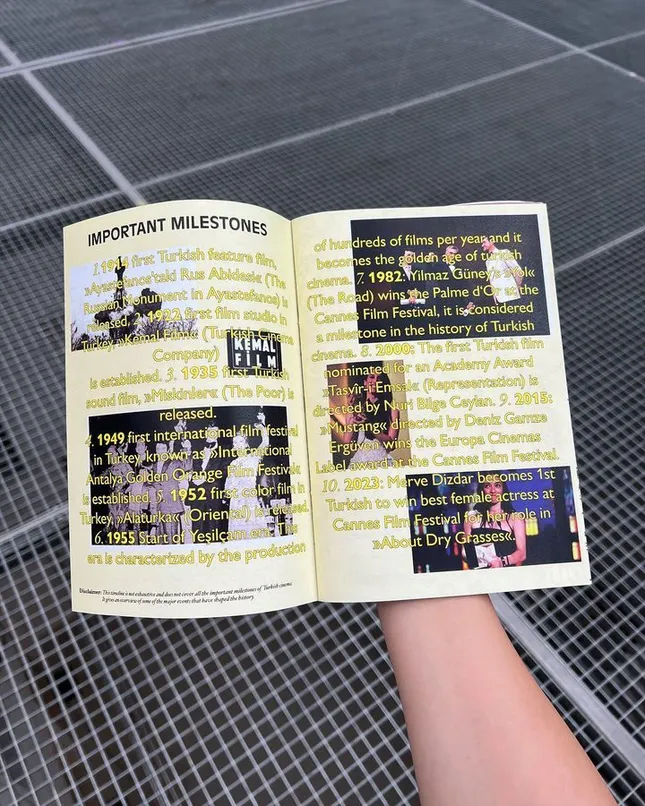 IMPORTANT MILESTONES
1. 1914 first Turkish feature film,
»Ayastefanos'taki Rus Abidesi« (The
Russian Monument in Ayastefanos) is
released. 2. 1922 first film studio in
Turkey »Kemal Film« (Turkish Cinema
Company)
KEMAL
FILM
is established. 3. 1935 first Turkish
sound film, »Miskinler« (The Poor) is
released.
4. 1949 first international film festival
in Turkey known as »International
Antalya Golden Orange Film Festival«
is established. 5. 1952 first color film in
Turkey, »Alaturka« (Oriental) is released.
6. 1955 Start of Yeşilçam era. This
era is characterized by the production
Disclaimer: This timeline is not exhaustive and does not cover all the important milestones of Turkish cinema.
It gives an overview of some of the major events that have shaped the history.
of hundreds of films per year and it
becomes the golden age of turkish
cinema. 7. 1982: Yilmaz Güney's »Yol«
(The Road) wins the Palme d'Or at the
Cannes Film Festival, it is considered
a milestone in the history of Turkish
cinema. 8. 2000: The first Turkish film
nominated for an Academy Award
»Tasvîr-i Emsal« (Representation) is
directed by Nuri Bilge Ceylan. 9. 2015:
»Mustang« directed by Deniz Gamze
Ergüven wins the Europa Cinemas
Label award at the Cannes Film Festival.
10. 2023: Merve Dizdar becomes 1st
Turkish to win best female actress at
Cannes Film Festival for her role in
»About Dry Grasses«.